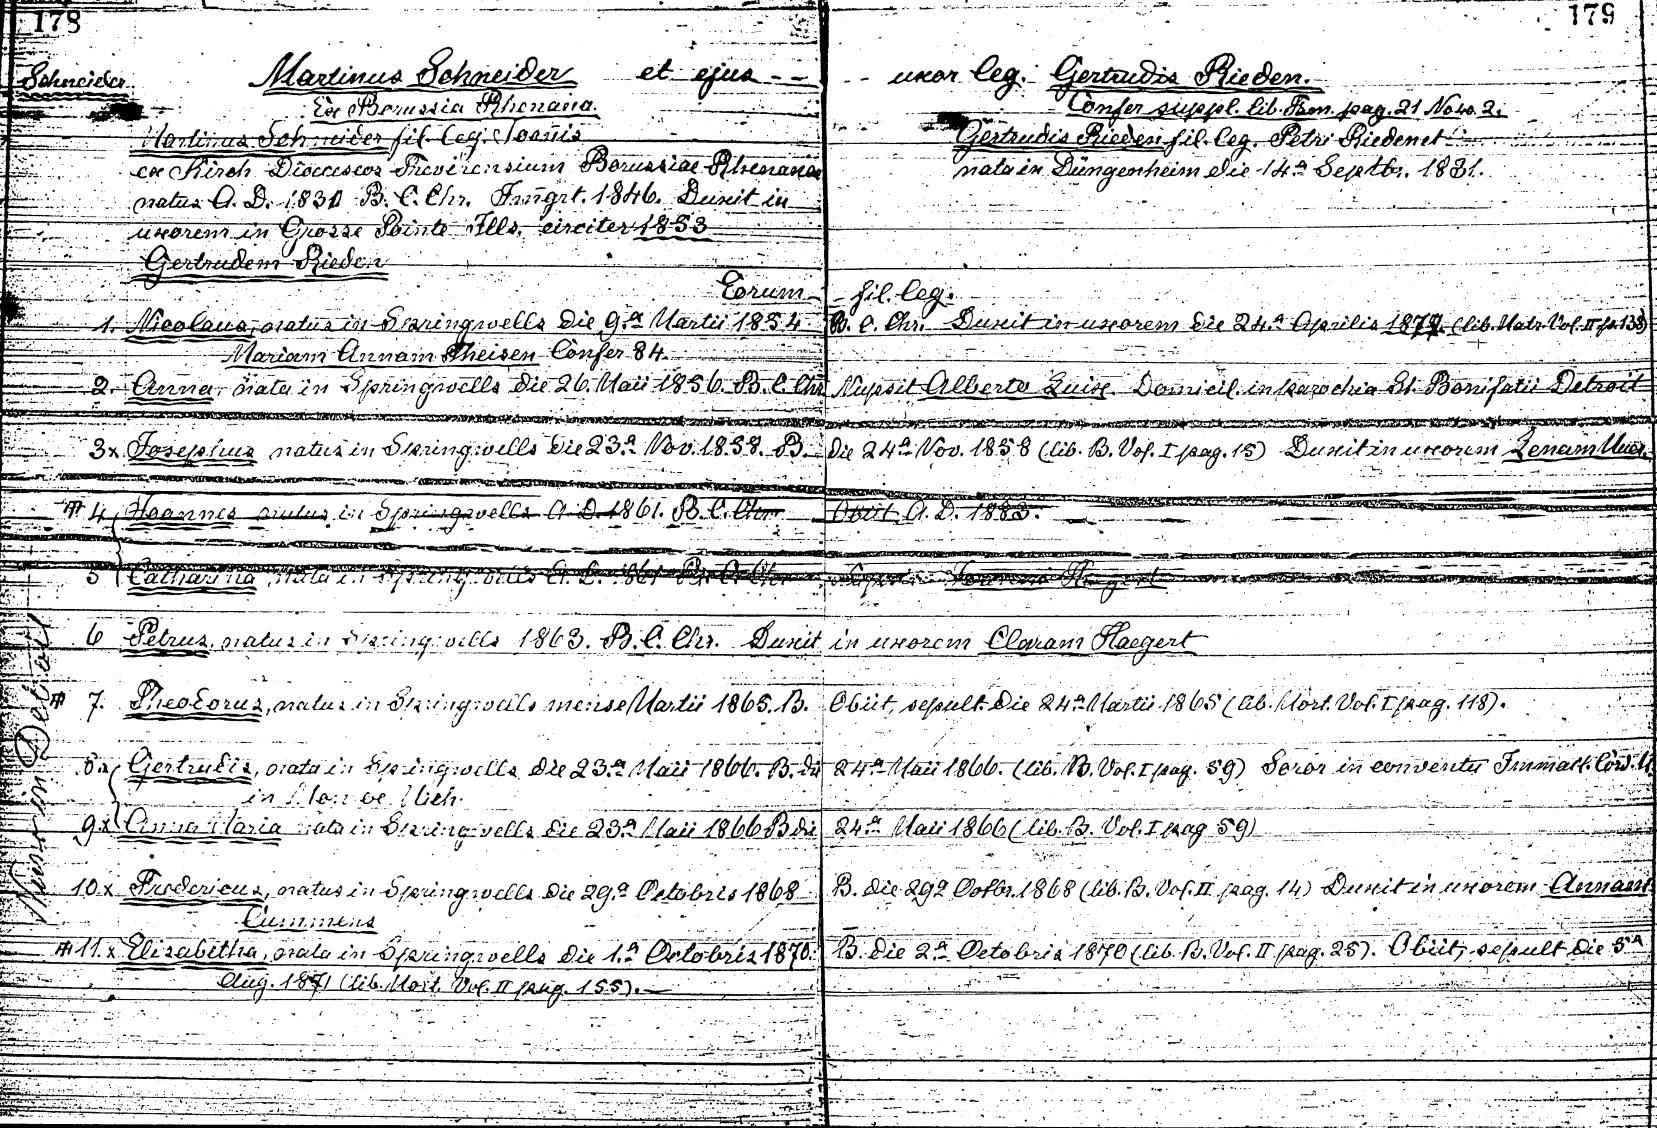 178
179
Schneider
Martinus Schneider et ejus - -
- - uxor leg. Gertrudis Rieden.
Ex Borussia Rhenana.
Confer suppl. lib. Fam. pag. 21 No. 2.
Martinus Schneider fil. leg. Joanis
Gertrudis Rieden fil. leg. Petri Rieden et
ex Kirch Dioeceseos Trevirensium Borussiae Rhenanae
nata in Düngenheim die 14a Septbr. 1831.
natus A. D. 1830 B. C. Chr. Immgrt. 1846. Duxit in
uxorem in Grosse Pointe Ills. circiter 1853
Gertrudem Rieden
Eorum - - fil. leg.
1. Nicolaus, natus in Springwells die 9.a Martii 1854 B. C. Chr. Duxit in uxorem die 24.a Aprilis 1877. (lib. Matr. Vol. II p. 138)
Mariam Annam Theisen Confer 84.
2. Anna, nata in Springwells die 26. Maii 1856. B. C. Chr. Nupsit Alberto Zuise. Domicil. in parochia St. Bonifatii Detroit
3x Josephus natus in Springwells die 23.a Nov. 1858. B. die 24a Nov. 1858 (lib. B. Vol. I pag. 15) Duxit in uxorem Lenam
4. Joannes natus in Springwells A. D. 1861. B. C. Chr. Obiit A. D. 1883.
5 Catharina, nata in Springwells A. D. 1861 B. C. Chr. Nupsit
6 Petrus, natus in Springwells 1863. B. C. Chr. Duxit in uxorem Claram Haegert
7. Theodorus, natus in Springwells mense Martii 1865. B. Obiit, sepult. die 24a Martii 1865 (lib. Mort. Vol. I pag. 118).
8x Gertrudis, nata in Springwells die 23.a Maii 1866. B. die 24a Maii 1866. (lib. B. Vol. I pag. 59) Soror in conventu Immac. Cord. M
in Monroe Mich.
9x Anna Maria nata in Springwells die 23.a Maii 1866 B die 24a Maii 1866 (lib. B. Vol. I pag 59)
10.x Fredericus, natus in Springwells die 29.a Octobris 1868 B. die 29a Octbr. 1868 (lib. B. Vol. II pag. 14) Duxit in uxorem Annam
Cummens
11.x Elisabetha, nata in Springwells die 1.a Octobris 1870. B. die 2a Octobris 1870 (lib. B. Vol. II pag. 25). Obiit, sepult die 5a
Aug. 1871 (lib. Mort. Vol. II pag. 155).